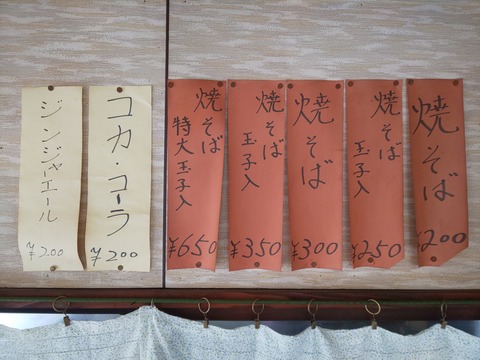 焼そば
¥200
焼そば
玉子入
¥250
焼そば
¥300
焼そば
玉子入
¥350
焼そば
特大玉子入
¥650
コカ・コーラ
¥200
ジンジャーエール
¥200